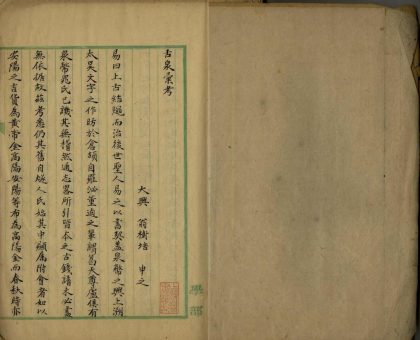 古泉彙考
大興 翁樹培 申之
易曰上古結繩而治後世聖人易之以書契蓋泉幣之興上溯
太昊文字之作昉於倉頡自羅泌重遍之輩謂葛天尊盧俱有
泉幣晁氏已譏其無稽然通志畧所引皆本之古錢譜未必盡
無依據故茲考悉仍其舊自燧人氏始其中顯屬附會者如以
安陽之吉貨為黃帝金高陽安陽等布為高陽金而春秋時亦
學部